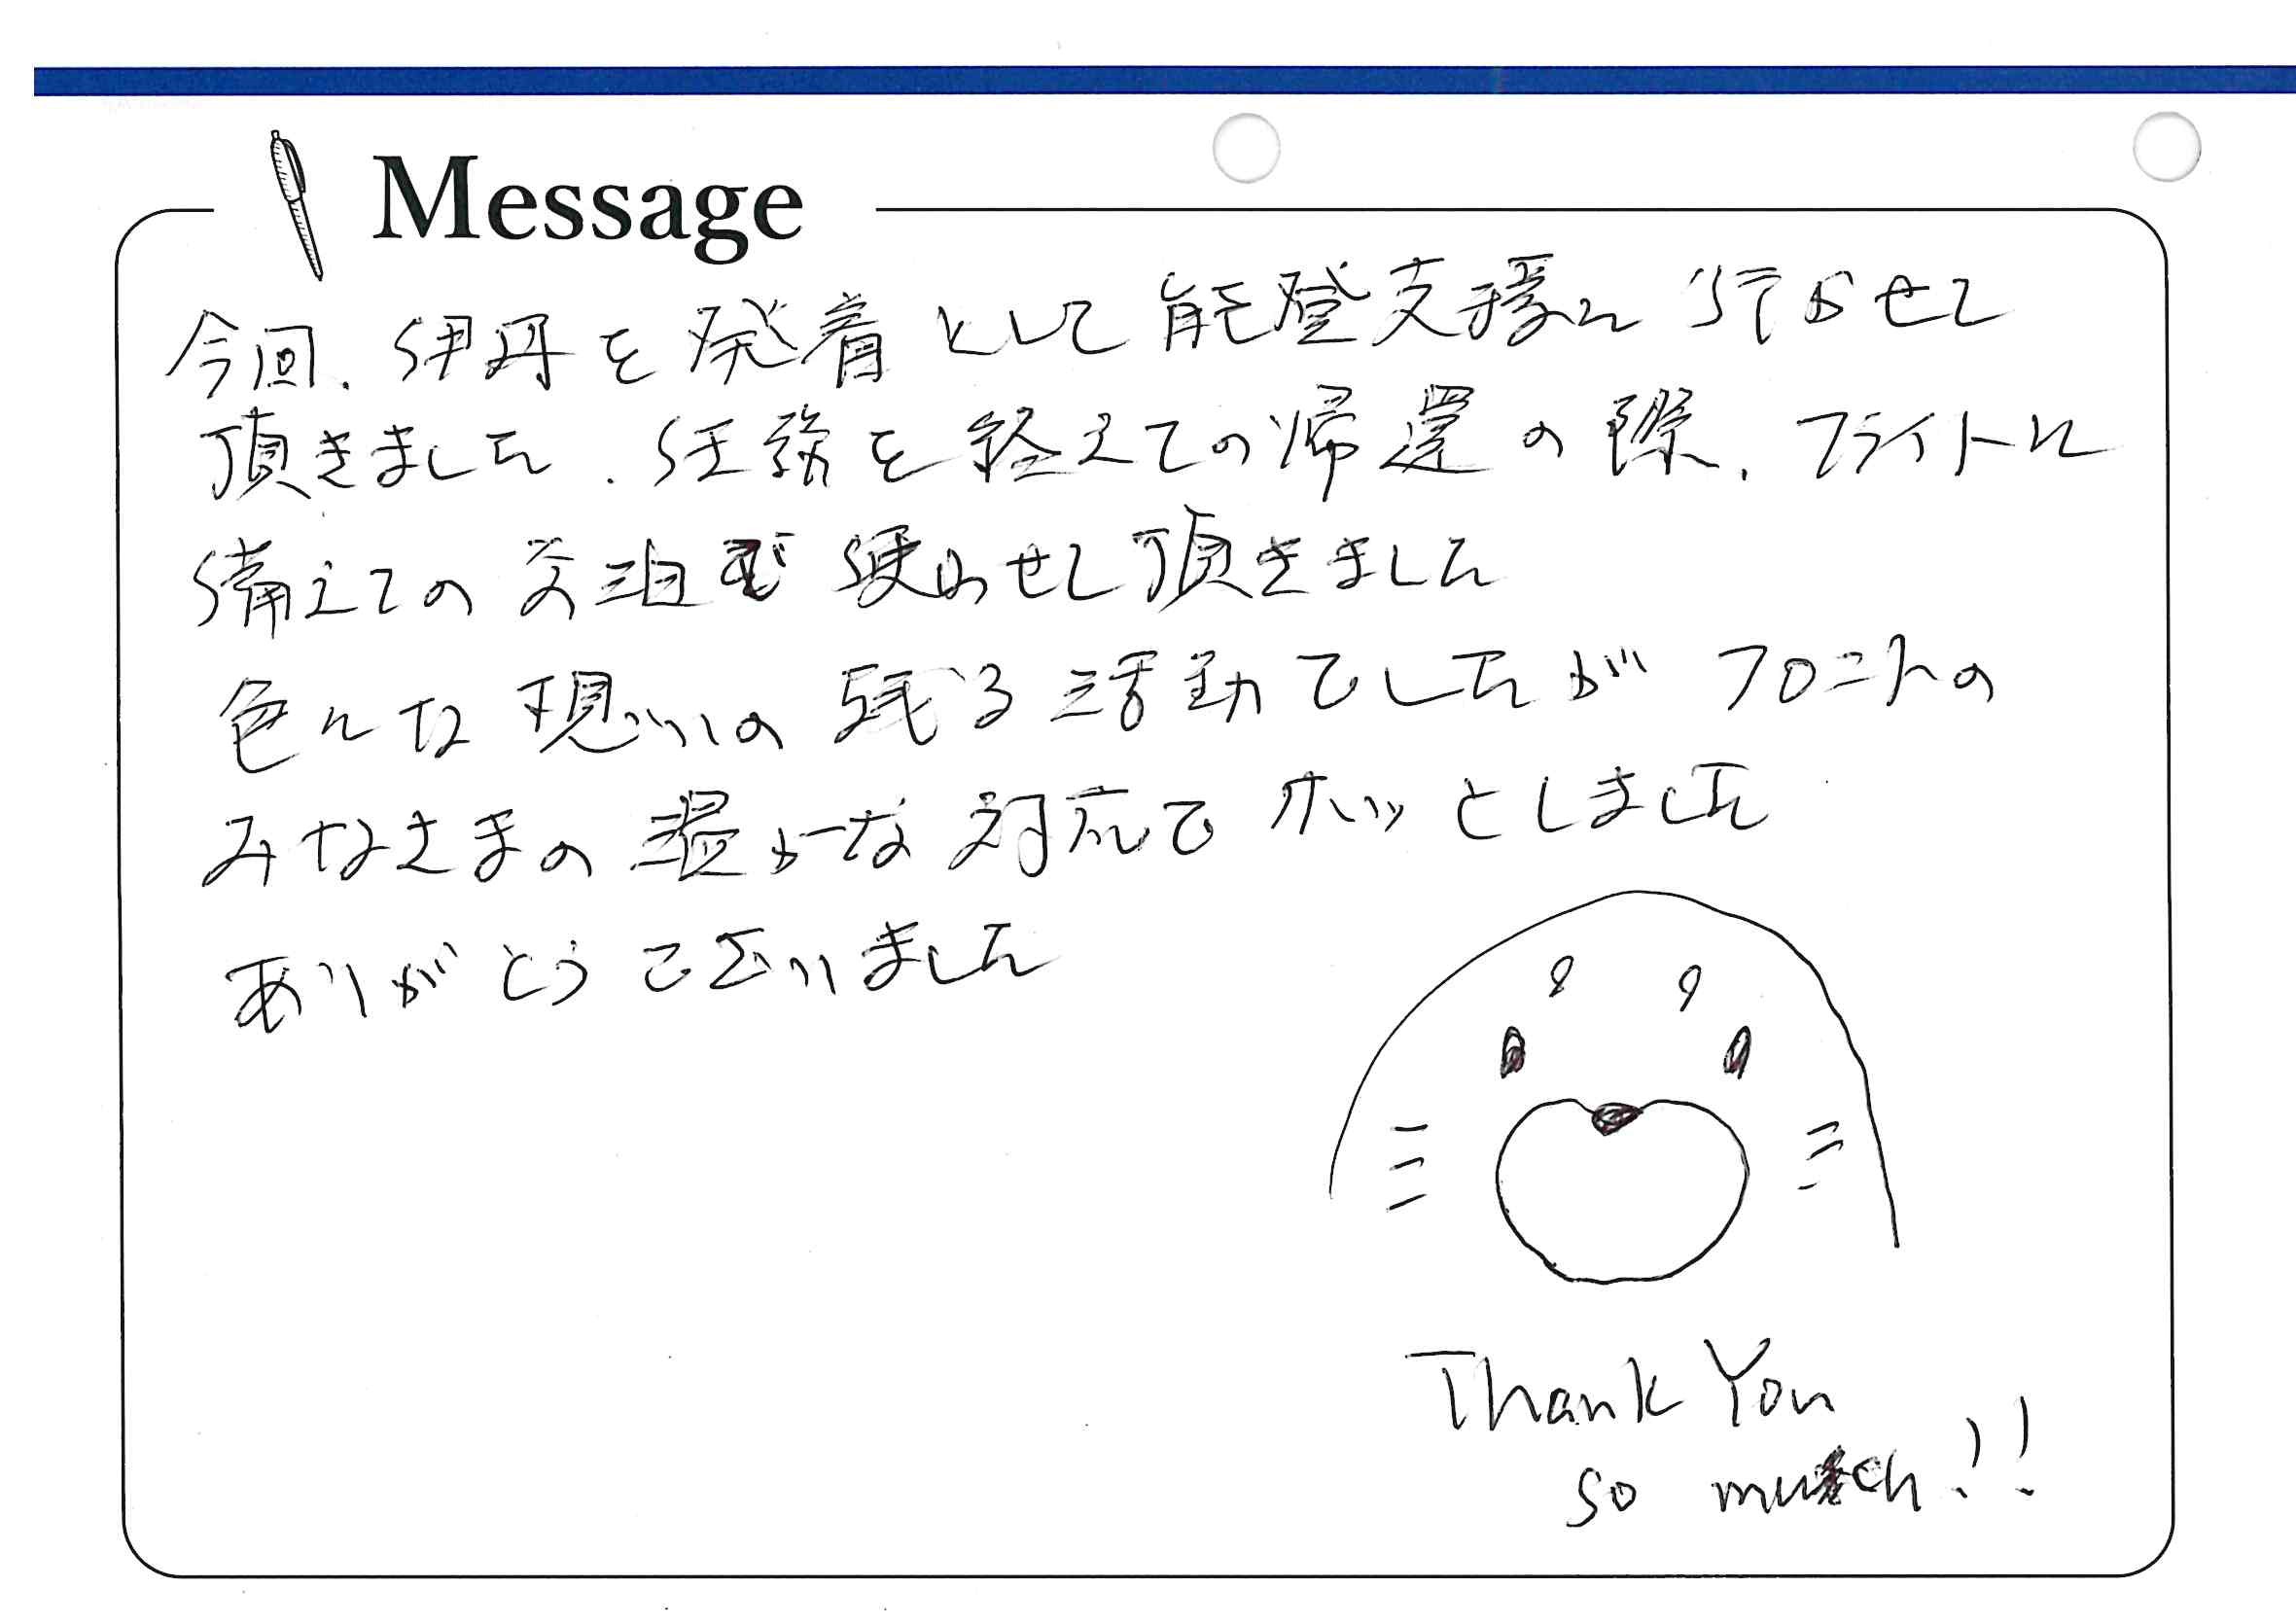 Message
今回、伊丹を発着として能登支援に行かせて
頂きました。任務を終えての帰還の際、フライトに
備えての前泊で使わせて頂きました
色んな想いの残る活動でしたが フロントの
みなさまの温かな対応で ホッとしました
ありがとうございました
Thank You
so much!!